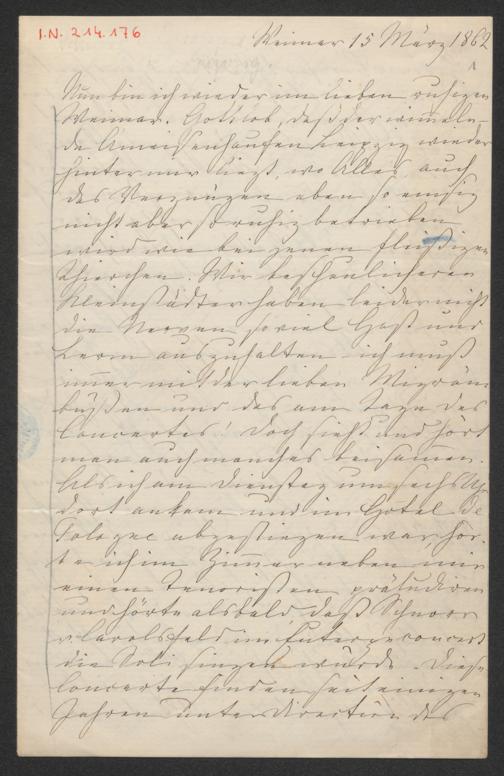 I.N. 214.176
Weimar 15 März 1862
1
Nun bin ich wieder im lieben ruhigen
Weimar. Gottlob, daß der wimeln-
de Ameisenhaufen Leipzig wieder
hinter mir liegt, wo Alles auch
das Vergnügen eben so emsig
nicht aber so ruhig betrieben
wird wie bei jenen fleißigen
Thierchen. Wir beschaulicheren
Kleinstädter haben leider nicht
die Nerven so viel Hast und
Lerm auszuhalten ich muß
immer mit der lieben Migräne
büßen und das am Tage des
Concertes! Doch sieht und hört
man auch manches beisamen.
Als ich am Dienstag um sechs Uhr
dort ankam und im Hotel de
Pologne abgestiegen war, hör-
te ich im Zimmer neben mir
einen Tenoristen präludiren
und hörte alsbald daß Schnorr
v Carolsfeld im Euterpeconcert
die Soli singen würde. Diese
Concerte finden seit einigen
Jahren unter Direction des